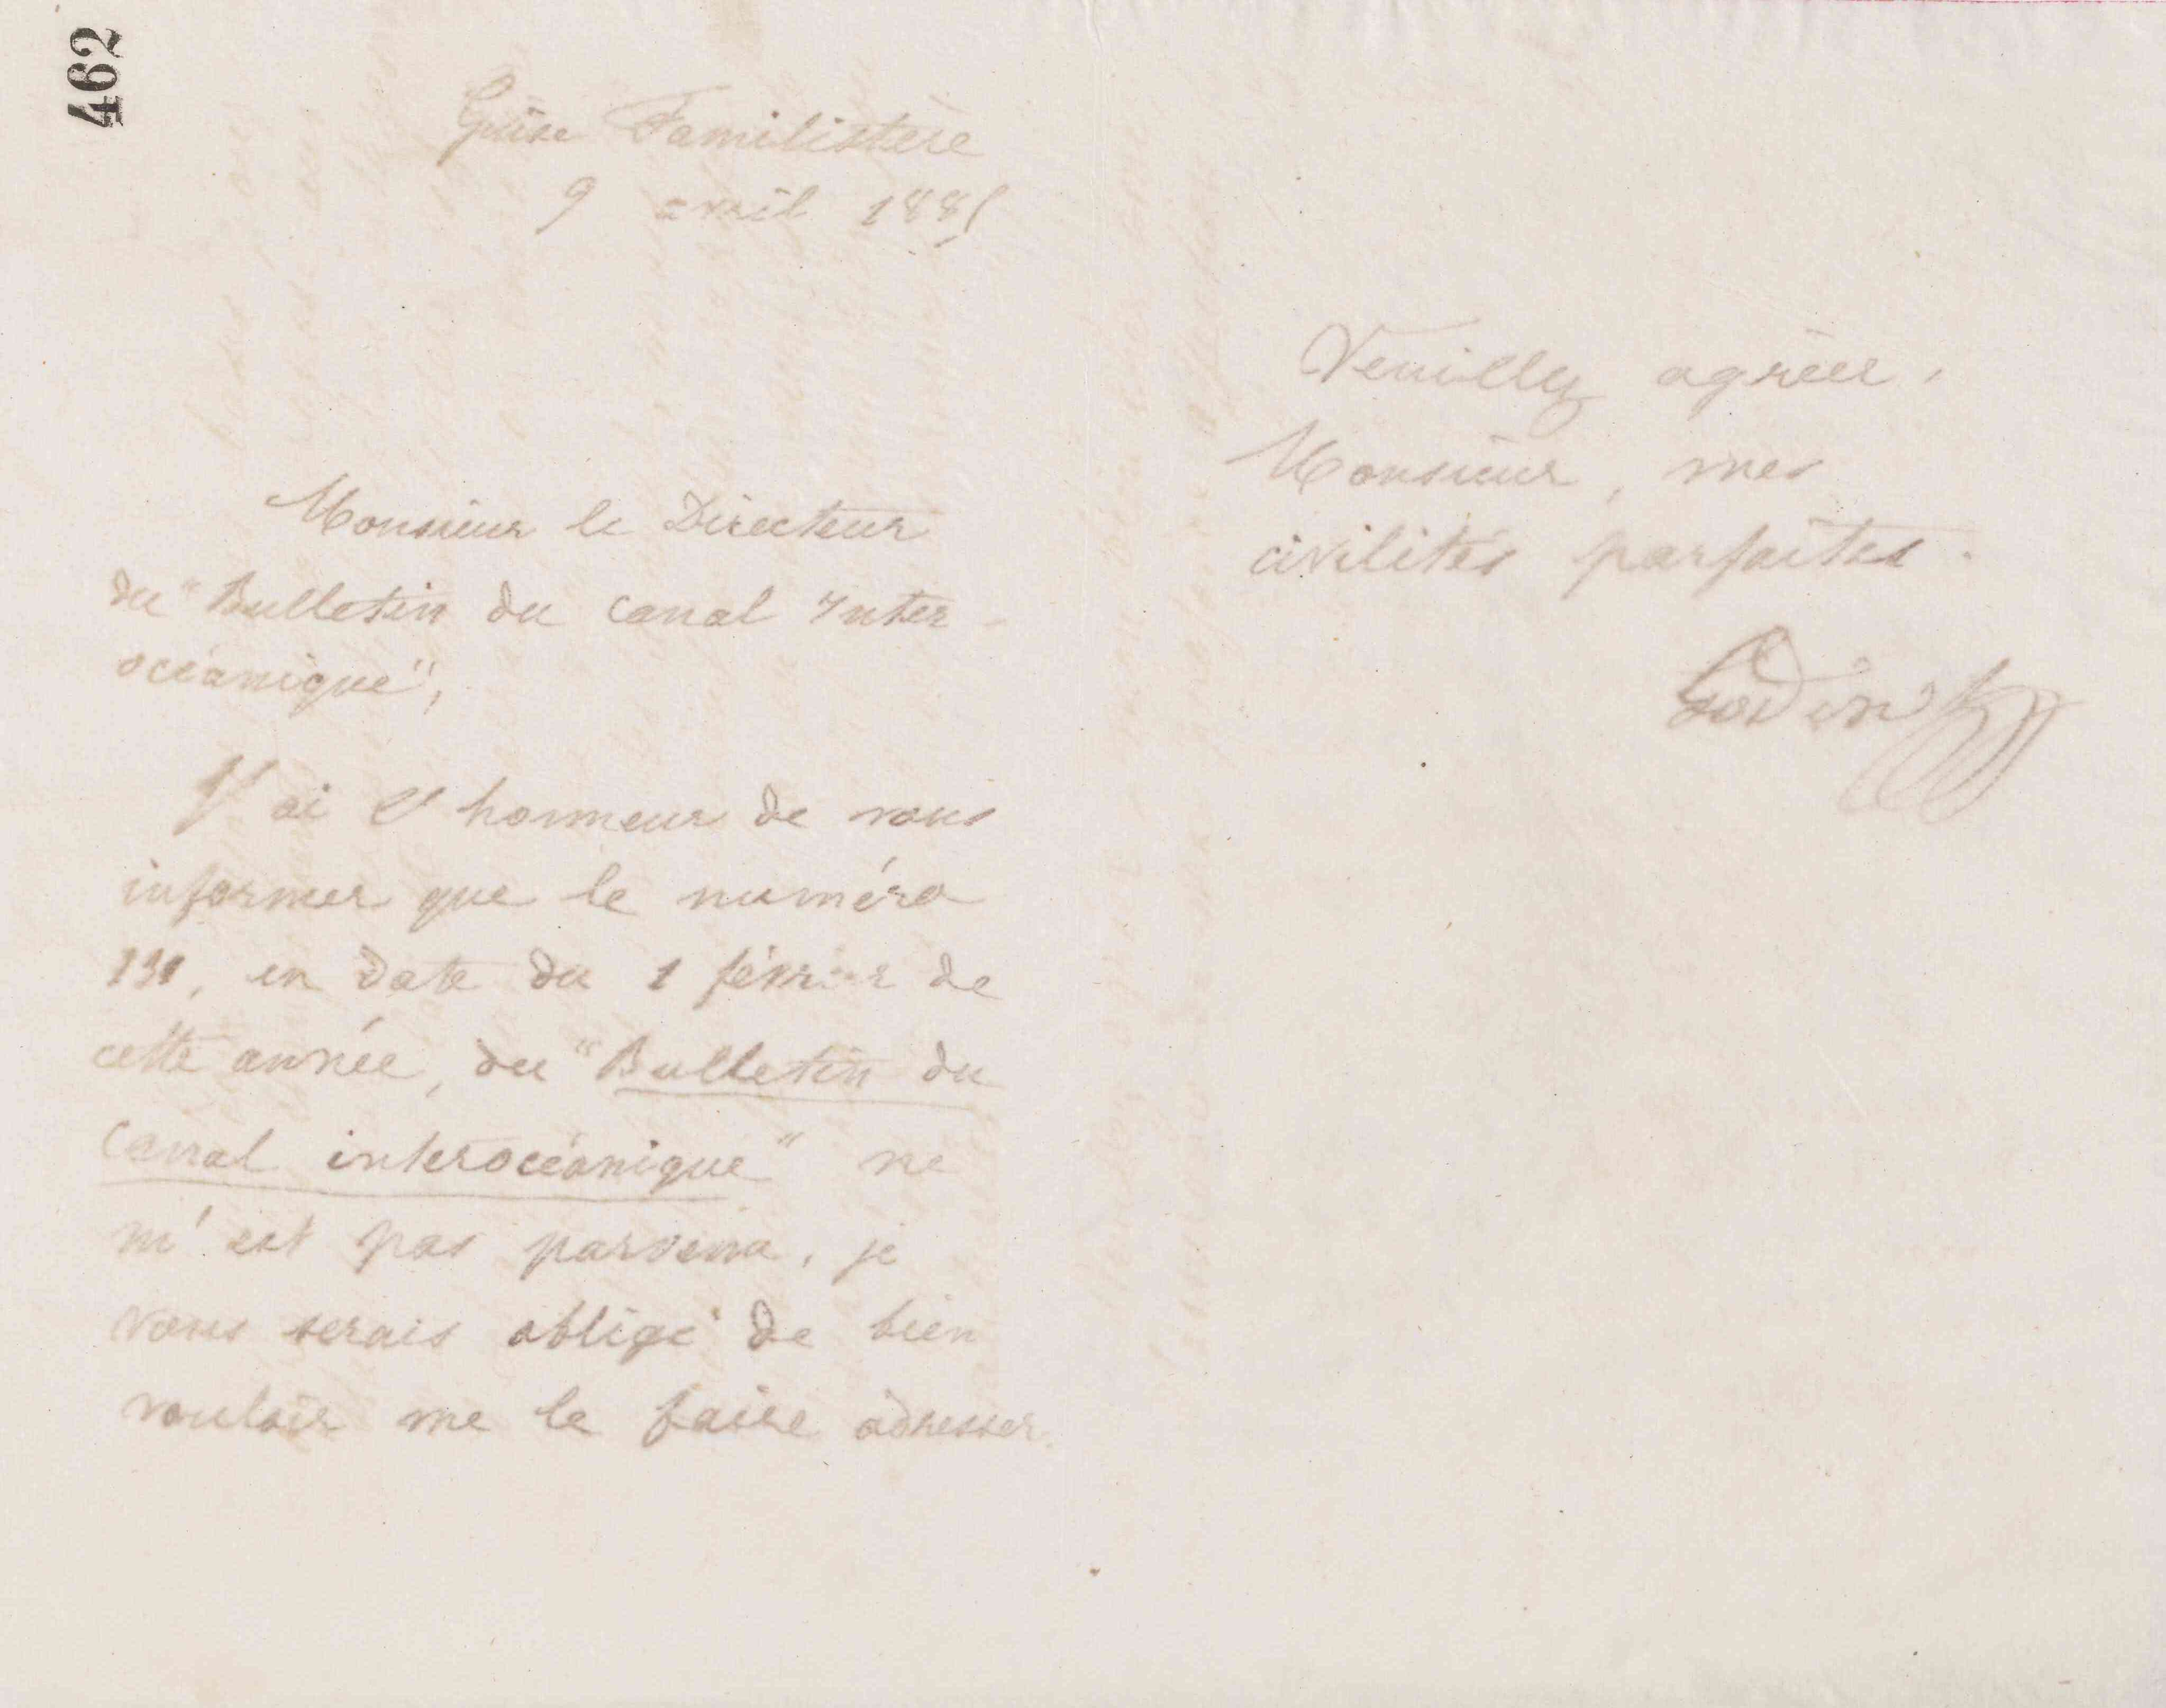 462
Guise Familistère
9 avril 1885
Monsieur le Directeur
du "Bulletin du Canal Inter-
océanique",
J'ai l'honneur de vous
informer que le numéro
en date du 1 février de
cette année, du "Bulletin du
Canal interocéanique" ne
m'est pas parvenu, je
vous serais obligé de bien
vouloir me le faire adresser.
Veuillez agréer,
Monsieur, mes
civilités parfaites.
Godin